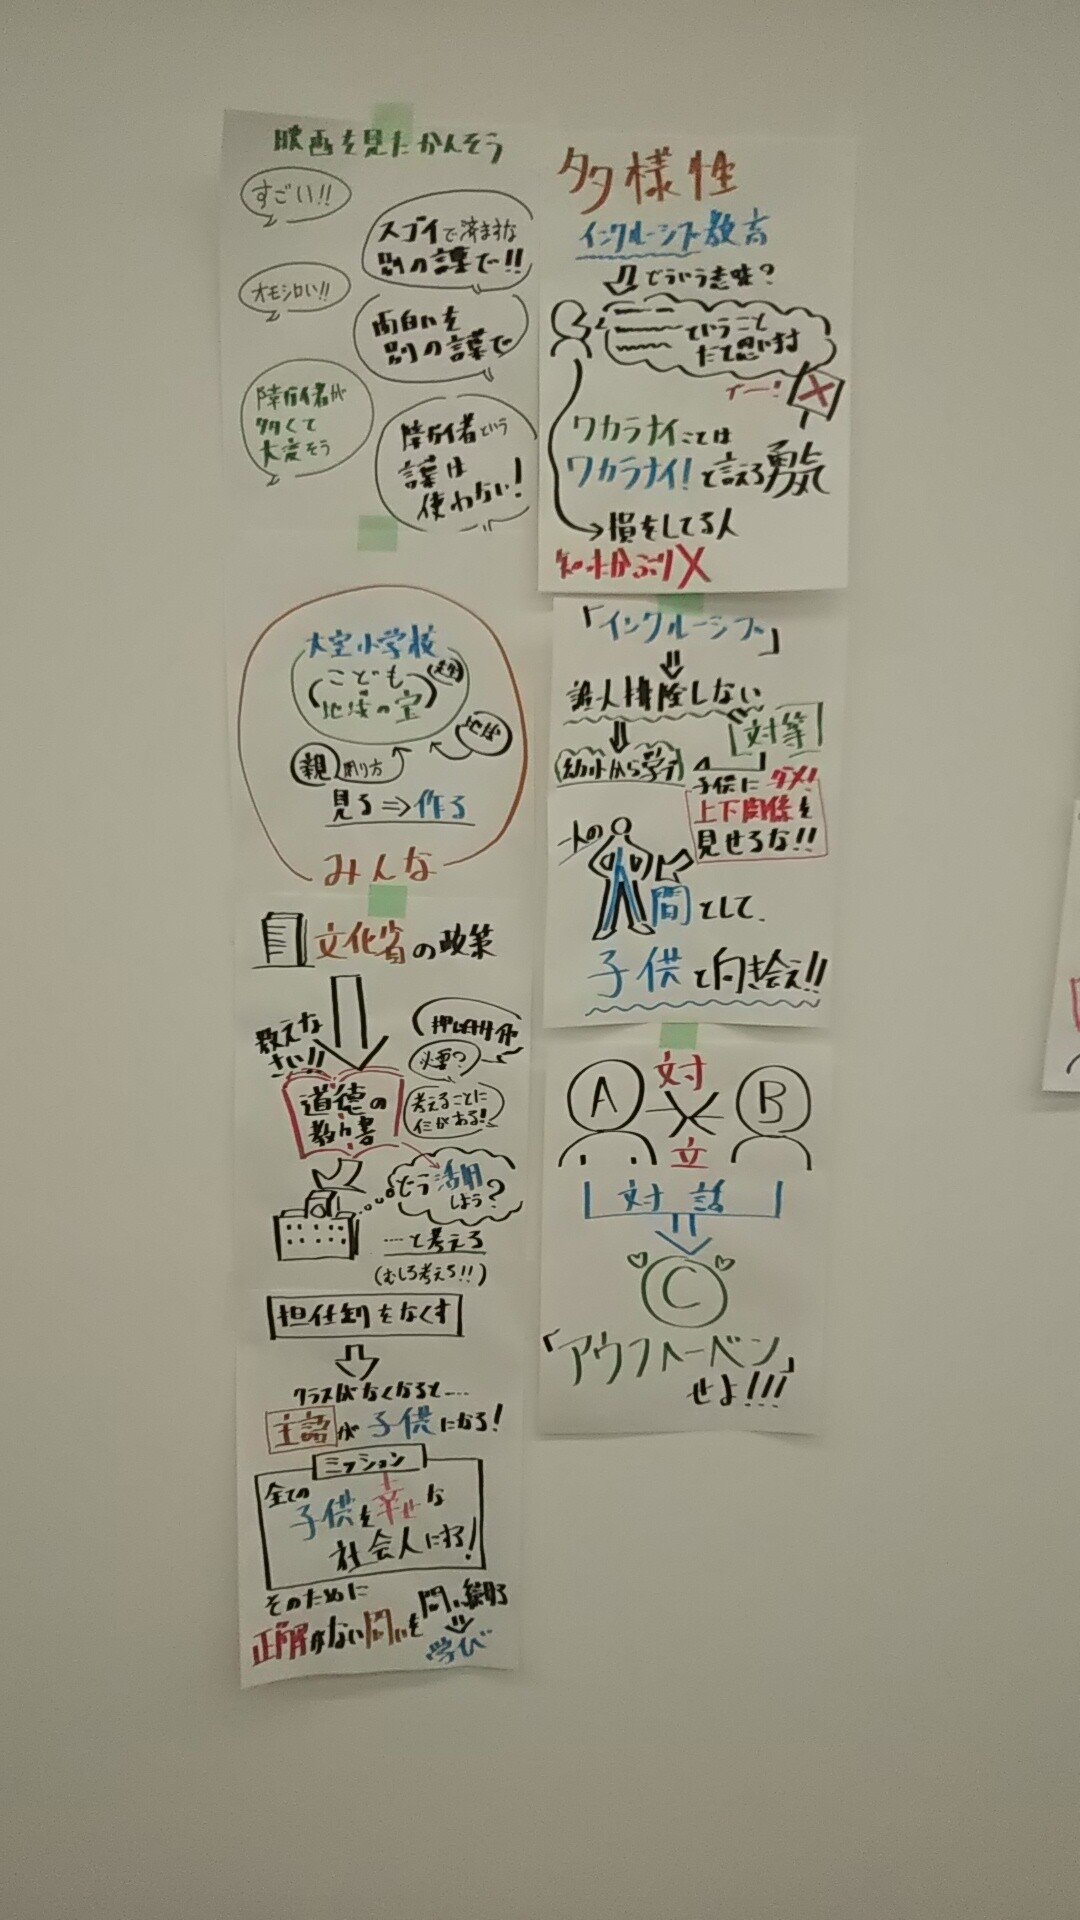 映画を見たかんそう
すごい!!
スゴイで済ますな
別の言葉で!!
オモシロい!!
面白いを
別の言葉で
障がい者が
多くて
大変そう
障がい者という
言葉は
使わない!
大空小学校
こども
地域の宝
地域
親
関り方
見る⇒作る
みんな
文化省の政策
教えな
さい!!
道徳の
教科書
必要?
考えることに
意味がある!
どう活用
しよう?
……と考える
(むしろ考えろ!!)
担任制をなくす
クラスがなくなると……
主語が子供になる!
ミッション
全ての
子供を幸せな
社会人にする!
そのために
正解がない問いを問い続ける
学び
多様性
インクルーシブ教育
どういう意味?
ということ
だと思います
ブー!
ワカラナイことは
ワカラナイ!と言える勇気
→損をしてる人
知ったかぶりX
「インクルーシブ」
誰一人排除しない
対等
幼少から学ぶ
子供にダメ!
上下関係を
見せるな!!
一人の
人間として、
子供と向き合え!!
A
対
立
B
対話
C
「アウフヘーベン」
せよ!!!